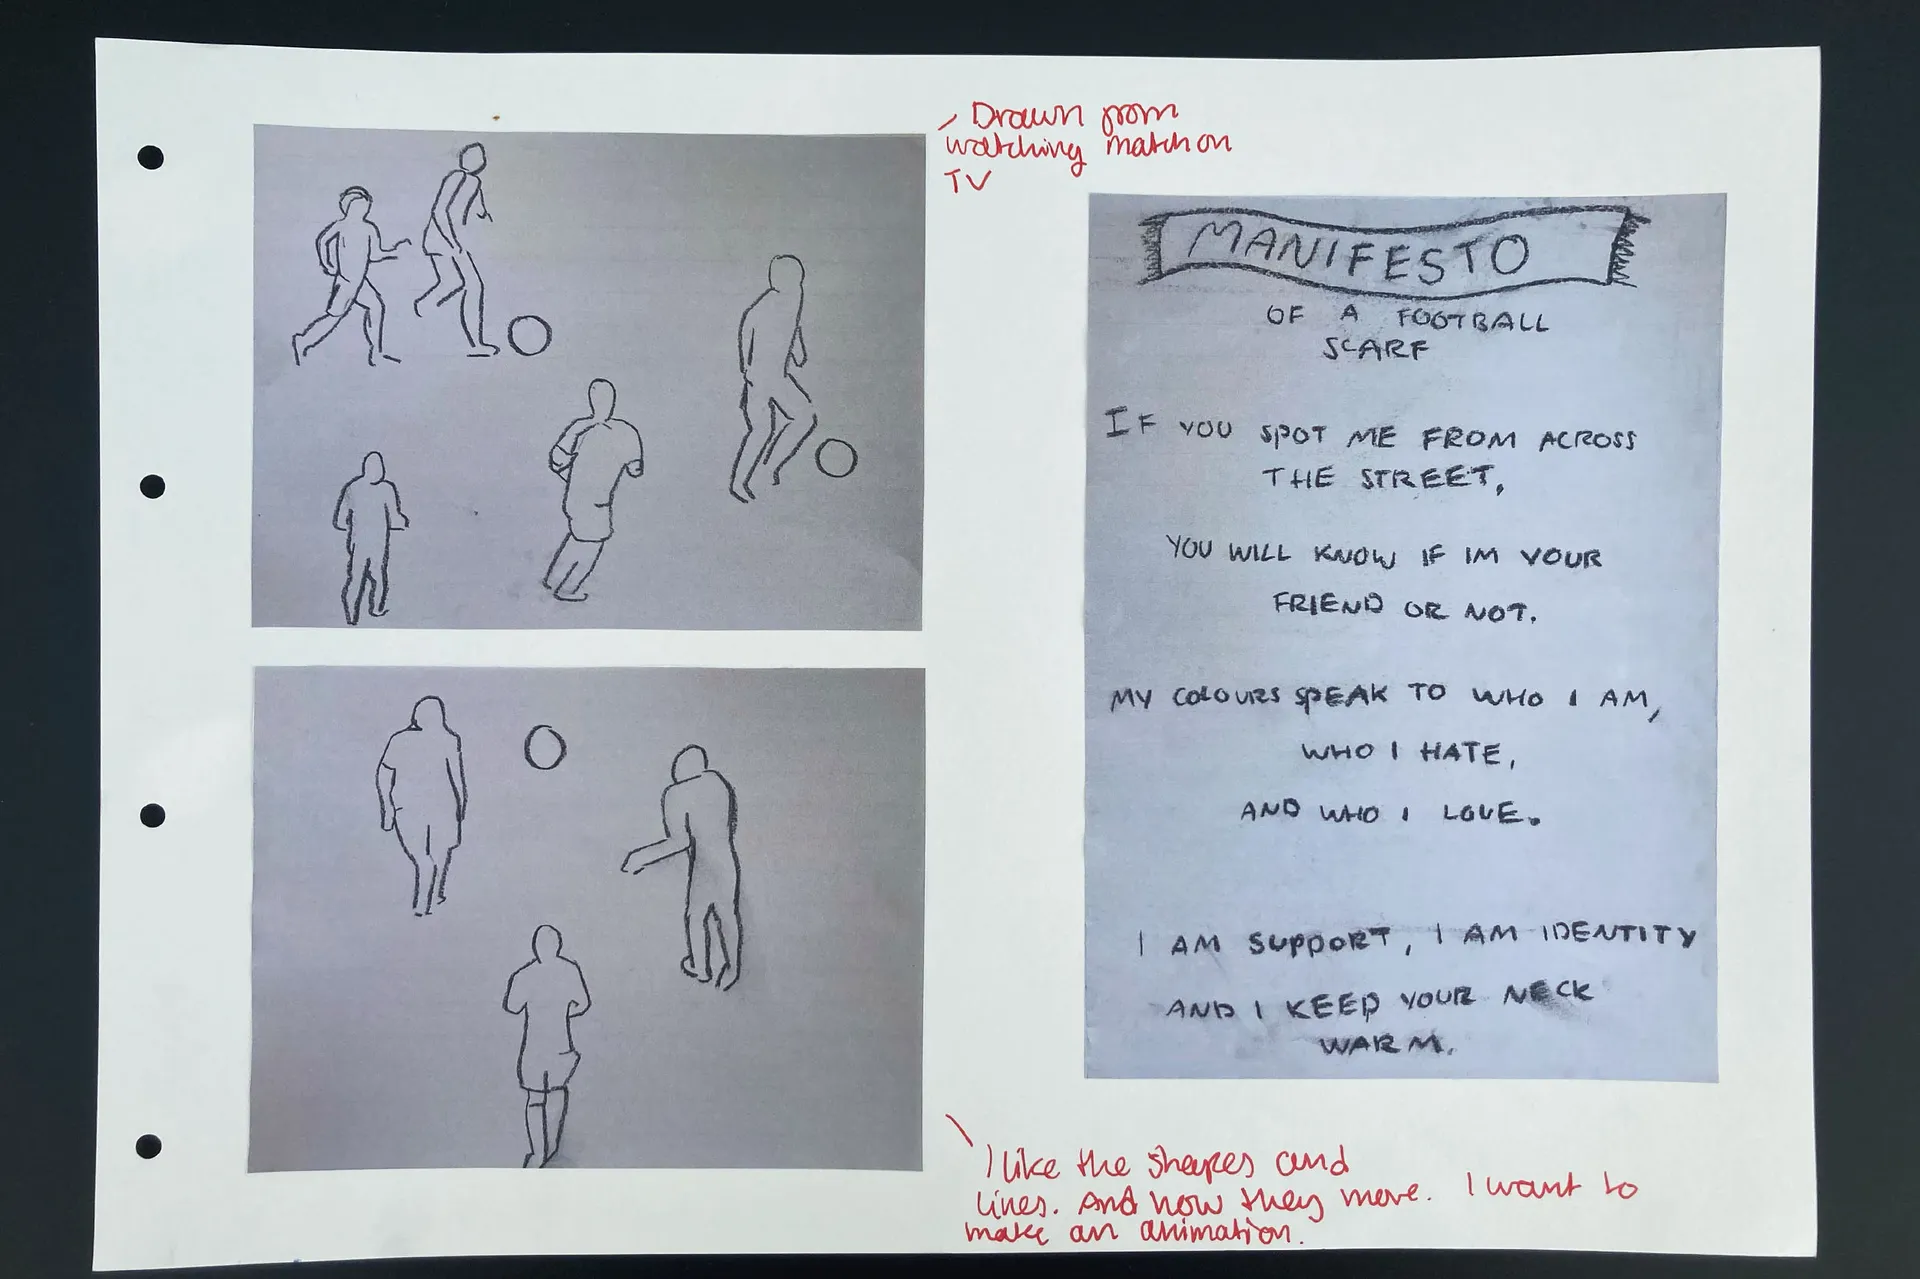 Drawn from
watching match on
TV
MANIFESTO
OF A FOOTBALL
SCARF
IF YOU SPOT ME FROM ACROSS
THE STREET,
YOU WILL KNOW IF IM YOUR
FRIEND OR NOT.
MY COLOURS SPEAK TO WHO I AM,
WHO I HATE,
AND WHO I LOVE.
I AM SUPPORT, I AM IDENTITY
AND I KEEP YOUR NECK
WARM.
I like the shapes and
lines. And how they move. I want to
make an animation.